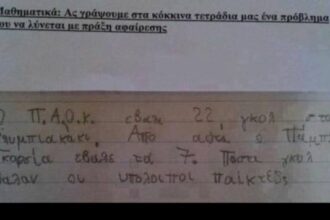 Μαθηματικά: Ας γράψουμε στα κόκκινα τετράδια μας ένα πρόβλημα
που να λύνεται με πράξη αφαίρεσης
Π.Α.Ο.Κ. εβαλε 22 γκολ στο
Απο αφτα ο
εβαλε τα 7. Ποσα γκολ
εβαλαν οι υπολοιποι παίκτες